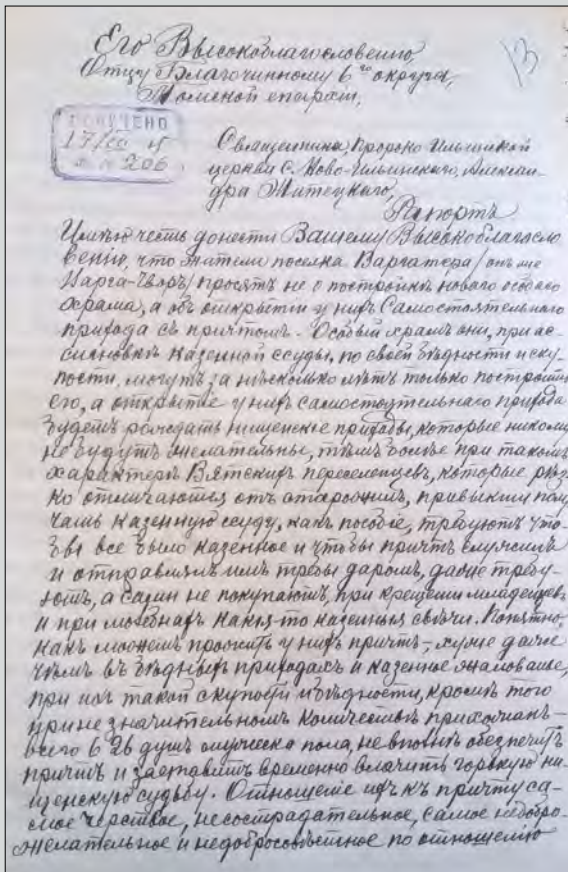 Его Высокоблагословенію,
Отцу Благочинному 6го округа,
Томской епархіи,
13
ПОЛУЧЕНО
17/
№ 206
Священника, Пророко-Ильинской
церкви с. Ново-Ильинскаго, Алексан-
дра Житецкаго,
Рапортъ
Имѣю честь донести Вашему Высокоблагосло
венію, что жители поселка Варгатера /онъ же
Нарга-Чворъ/ просятъ не о постройкѣ новаго особаго
храма, а объ открытіи у нихъ самостоятельнаго
прихода съ причтомъ. Особый храмъ они, при ас-
сигновкѣ казенной ссуды, по своей бѣдности и ску-
пости, могутъ за нѣсколько лѣтъ только построить
его, а открытіе у нихъ самостоятельнаго прихода
будетъ рождать нищенскіе приходы, которые никому
не будутъ желательны, тѣмъ болѣе при такомъ
характерѣ Вятскихъ переселенцевъ, которые рѣз
ко отличаются отъ старожилъ, привыкли полу
чать казенную ссуду, какъ пособіе, требуютъ что-
бы все было казенное и чтобы причтъ служилъ
и отправлялъ имъ требы даромъ, даже требу-
ютъ, а сами не покупаютъ, при крещеніи младенцевъ
и при молебнахъ какія-то казенныя свѣчи. Понятно,
какъ можетъ прожить у нихъ причтъ, хуже даже
чѣмъ въ бѣдныхъ приходахъ и казенное жалованье,
при ихъ такой скупости и бѣдности, кромѣ того
при не значительномъ количествѣ прихожанъ-
всего 626 душъ мужеска пола, не вполнѣ обезпечитъ
причтъ и заставитъ временно влачить горькую ни-
щенскую судьбу. Отношеніе ихъ къ причту са-
мое черствое, несострадательное, самое недобро-
желательное и недобросовѣстное по отношенію